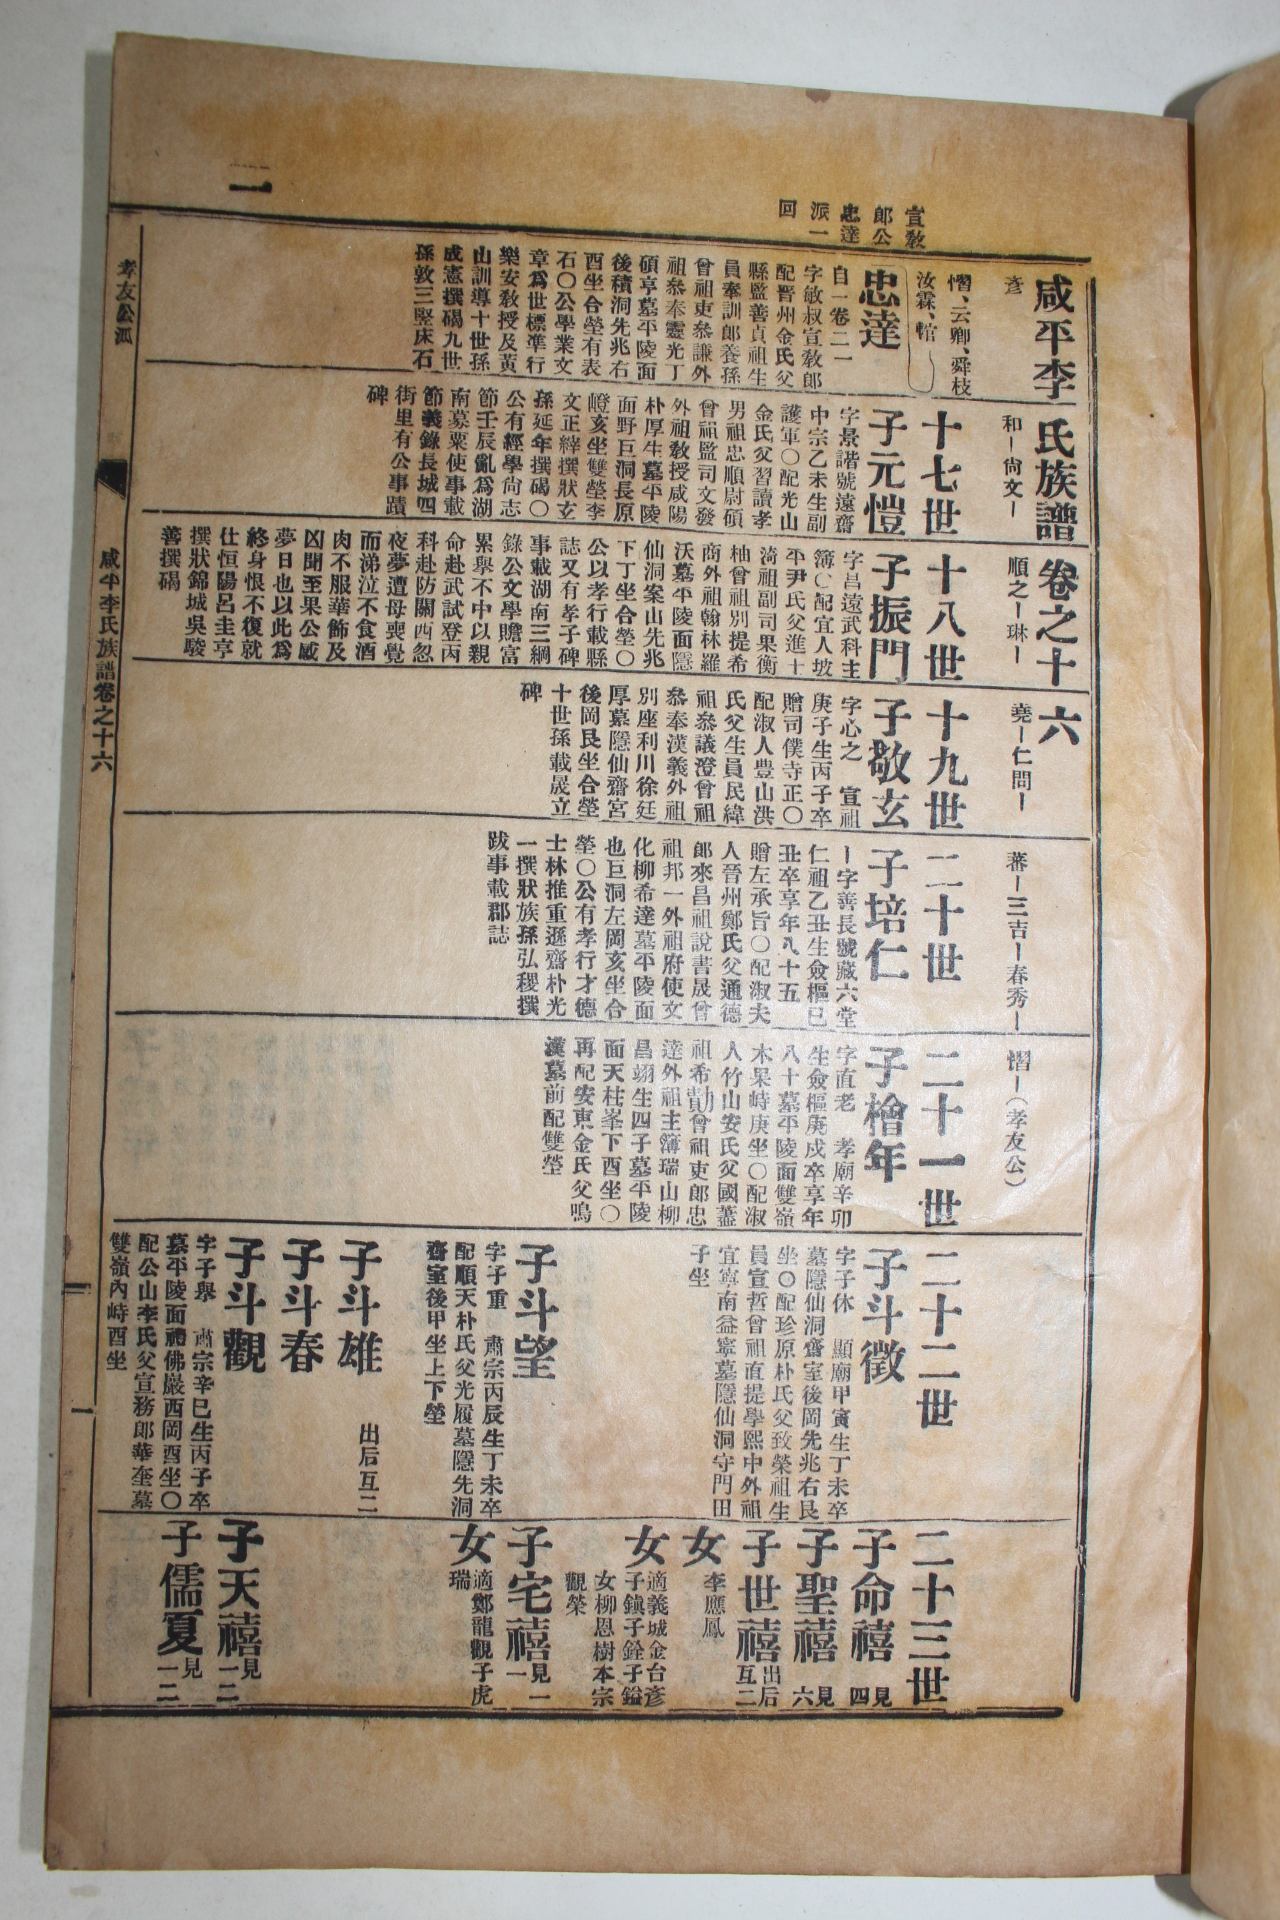 二
宣教
郎公
忠達
派一
回
咸平李氏族譜卷之十六
彦
和ー尙文ー
順之ー琳ー
堯ー仁問ー
蕃ー三吉ー春秀ー
慴ー(孝友公)
慴、云卿、舜枝
汝霖、棺
忠達
自一卷二一
字敏叔宣敎郎
配晋州金氏父
縣監善貞祖生
員奉訓郎養孫
曾祖吏叅謙外
祖叅奉靈光丁
碩亨墓平陵面
後積洞先兆右
酉坐合塋有表
石〇公學業文
章爲世標準行
樂安敎授及黃
山訓導十世孫
成憲撰碣九世
孫敦三竪床石
十七世
子元愷
字景諧號遠齋
中宗乙未生副
護軍〇配光山
金氏父習讀孝
男祖忠順尉碩
曾祖監司文發
外祖敎授咸陽
朴厚生墓平陵
面野巨洞長原
嶝亥坐雙塋李
文正緈撰狀玄
孫延年撰碣〇
公有經學尙志
節壬辰亂爲湖
南募粟使事載
節義錄長城四
街里有公事蹟
碑
十八世
子振門
字昌遠武科主
簿〇配宜人坡
平尹氏父進士
漪祖副司果衡
柚曾祖別提希
商外祖翰林羅
沃墓平陵面隱
仙洞案山先兆
下丁坐合塋〇
公以孝行載縣
誌又有孝子碑
事載湖南三綱
錄公文學贍富
累擧不中以親
命赴武試登丙
科赴防關西忽
夜夢遭母喪覺
而涕泣不食酒
肉不服華飾及
凶聞至果公感
夢日也以此爲
終身恨不復就
仕恒陽呂圭亨
撰狀錦城吳駿
善撰碣
十九世
子敬玄
字心之　宣祖
庚子生丙子卒
贈司僕寺正〇
配淑人豊山洪
氏父生員民緯
祖叅議澄曾祖
叅奉漢義外祖
別座利川徐廷
厚墓隱仙齋宮
後岡艮坐合塋
十世孫載晟立
碑
二十世
子培仁
ー字善長號藏六堂
仁祖乙丑生僉樞已
丑卒享年八十五
贈左承旨〇配淑夫
人晉州鄭氏父通德
郎來昌祖說書晟曾
祖邦一外祖府使文
化柳希達墓平陵面
也巨洞左岡亥坐合
塋〇公有孝行才德
士林推重遜齋朴光
一撰狀族孫弘稷撰
跋事載郡誌
二十一世
子檜年
字直老　孝廟辛卯
生僉樞庚戌卒享年
八十墓平陵面雙嶺
木果峙庚坐〇配淑
人竹山安氏父國藎
祖希勣曾祖吏郎忠
達外祖主簿瑞山柳
昌翊生四子墓平陵
面天柱峯下酉坐〇
再配安東金氏父鳴
漢墓前配雙塋
二十二世
子斗徵
字子休　顯廟甲寅生丁未卒
墓隱仙洞齋室後岡先兆右艮
坐〇配珍原朴氏父致榮祖生
員宣哲曾祖直提學熙中外祖
宜寧南益寧墓隱仙洞守門田
子坐
子斗望
字子重　肅宗丙辰生丁未卒
配順天朴氏父光履墓隱先洞
齋室後甲坐上下塋
子斗雄　出后互二
子斗春
子斗觀
字子擧　肅宗辛巳生丙子卒
墓平陵面禮佛巖西岡酉坐〇
配公山李氏父宣務郎華奎墓
雙嶺內峙酉坐
二十三世
子命禧 見四
子聖禧 見六
子世禧 出后互二
女 李應鳳
女 適義城金台彥
子鎭子銓子鎰
女柳恩樹本宗
觀榮
子宅禧 見一一
女 適鄭龍觀子虎
瑞
子天禧 見一二
子儒夏 見一二
孝友公派
咸平李氏族譜卷之十六
一